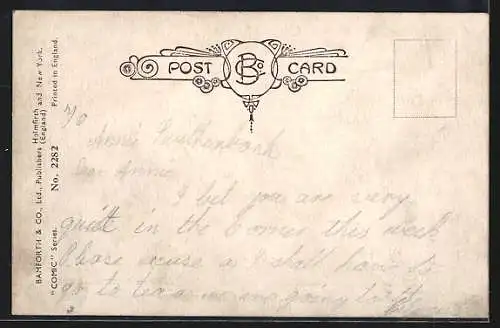 POST CARD
BAMFORTH & CO., Ltd., Publishers Holmfirth and New York.
(England)
"COMIC" Series. No. 2282 Printed in England.
Annie
Dear Annie
I bet you are very
quiet in the corner this week
Please excuse as I shall have to
go to tea as we are going to